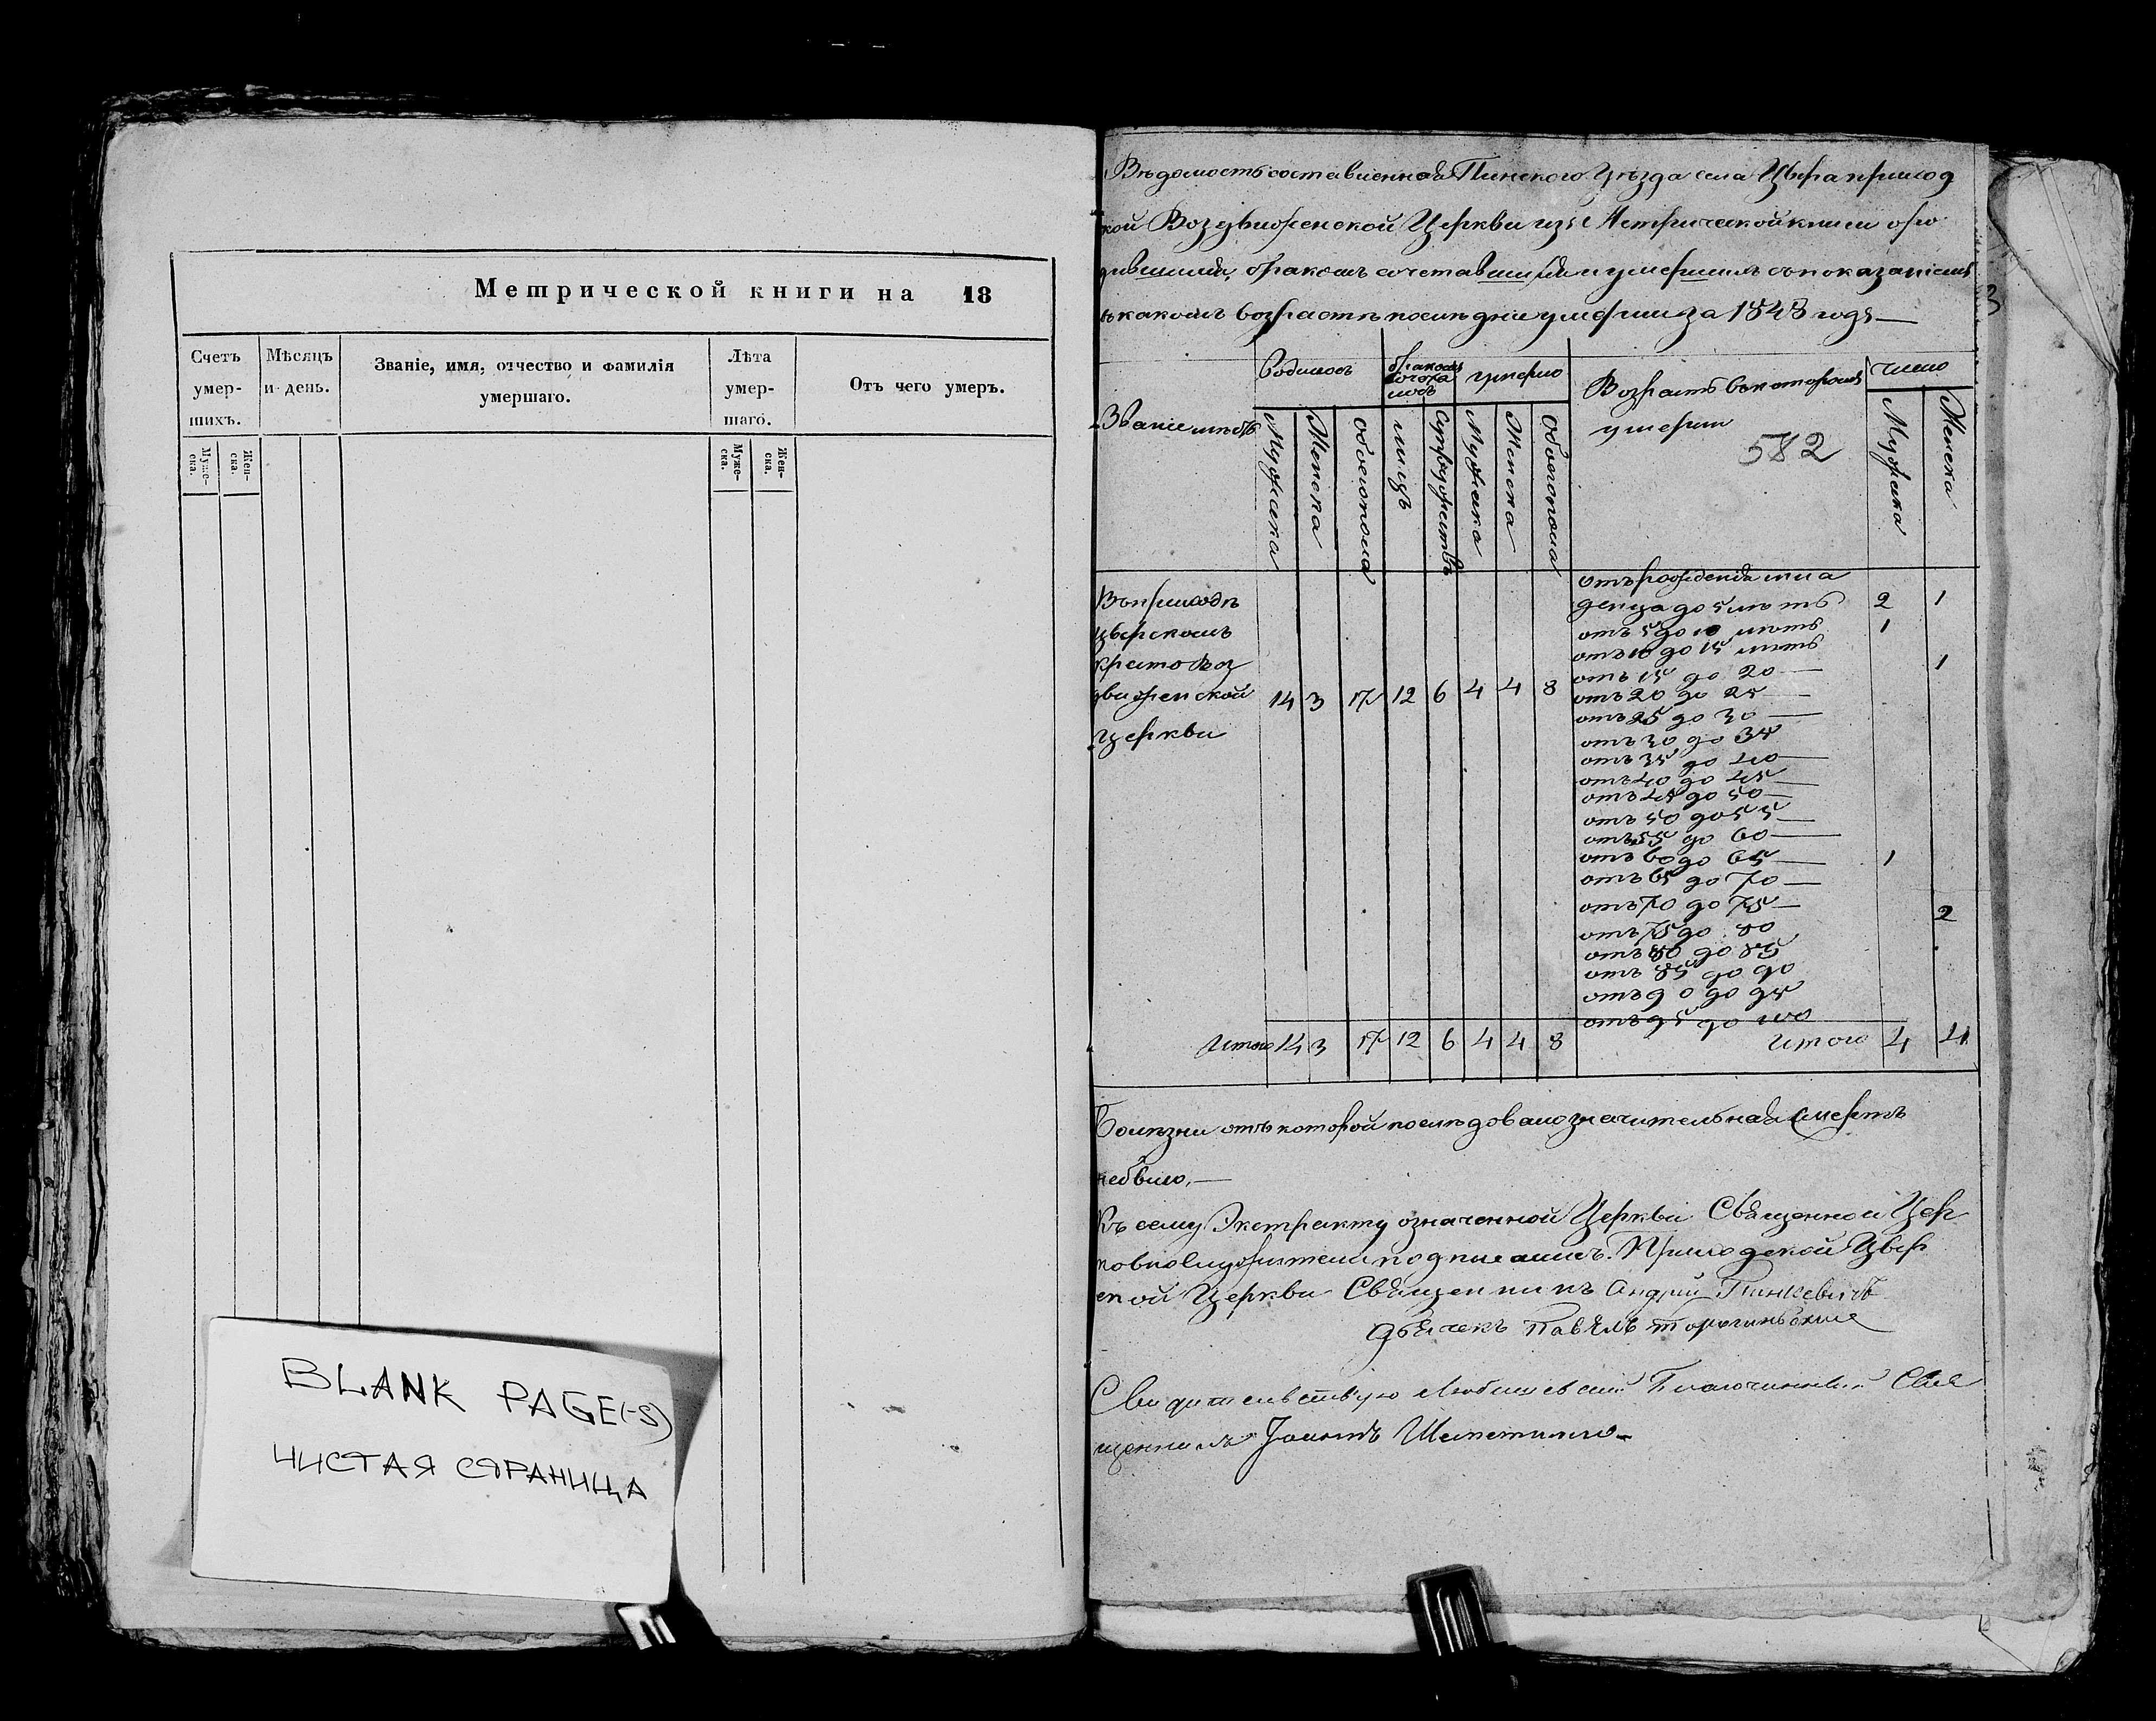 Метрической книги на 18
Счетъ умер-шихъ.
Мѣсяцъ и день.
Званіе, имя, отчество и фамилія умершаго.
Лѣта умер-шаго.
Отъ чего умеръ.
Муже-ска.
Жен-ска.
Муже-ска.
Жен-ска.
BLANK PAGE(-S)
ЧИСТАЯ СТРАНИЦА
Вѣдомость составленная Пинского Уѣзда села Цвера приход
кой Воздвиженской Церкви изъ Метрической книги о ро
дившихся, бракомъ сочетавшихся и умершихъ съ показаніемъ
въ какомъ возрастѣ послѣдніе умерши за 1848 годъ —
Званіе мѣстъ
Родилось
бракомъ сочета лось
умерло
Возрастъ въ которомъ
умерли
582
число
Мужеска
Женска
Обоегопола
лицъ
Супружествъ
Мужеска
Женска
Обоегопола
Мужеска
Женска
Въ приходѣ
Цверскомъ
Кресто Воз
движенской
Церкви
14 3 17 12 6 4 4 8
отъ рожденія мла
денца до 5 лѣтъ 2 1
отъ 5 до 10 лѣтъ 1
отъ 10 до 15 лѣтъ
отъ 15 до 20 — 1
отъ 20 до 25 —
отъ 25 до 30 —
отъ 30 до 35
отъ 35 до 40 —
отъ 40 до 45 —
отъ 45 до 50 —
отъ 50 до 55 —
отъ 55 до 60 —
отъ 60 до 65 — 1
отъ 65 до 70 —
отъ 70 до 75 — 2
отъ 75 до 80
отъ 80 до 85
отъ 85 до 90
отъ 90 до 95
отъ 95 до 100
Итого 14 3 17 12 6 4 4 8 Итого 4 4
Болѣзни отъ которой послѣдовало значительная Смерть
небыло, —
Къ сему Экстракту означенной Церкви Священно и Цер
ковнослужители подписались. Приходской Цвер
ской Церкви Священникъ Андрій Гинкевичъ
дьячекъ Павелъ
Свидительствую Любешевскій Благочинный Свя
щенникъ Іоаннъ